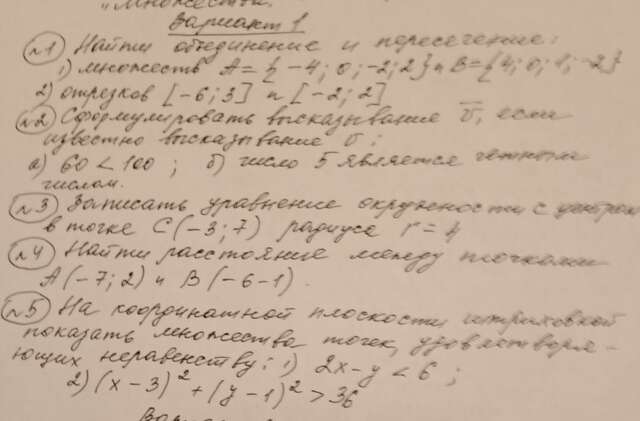 „Множества.
Вариант 1
№1 Найти объединение и пересечение:
1) множеств A = { -4; 0; -2; 2 } и B = { 4; 0; 1; -2 }
2) отрезков [-6; 3] и [-2; 2]
№2 Сформулировать высказывание б̅, если
известно высказывание б:
а) 60 < 100 ; б) число 5 является четным
числом.
№3 Записать уравнение окружности с центром
в точке C (-3; 7) радиуса r = 4
№4 Найти расстояние между точками
A (-7; 2) и B (-6 -1).
№5 На координатной плоскости штриховкой
показать множества точек, удовлетворя-
ющих неравенству: 1) 2x - y < 6 ;
2) (x - 3)² + (y - 1)² > 36